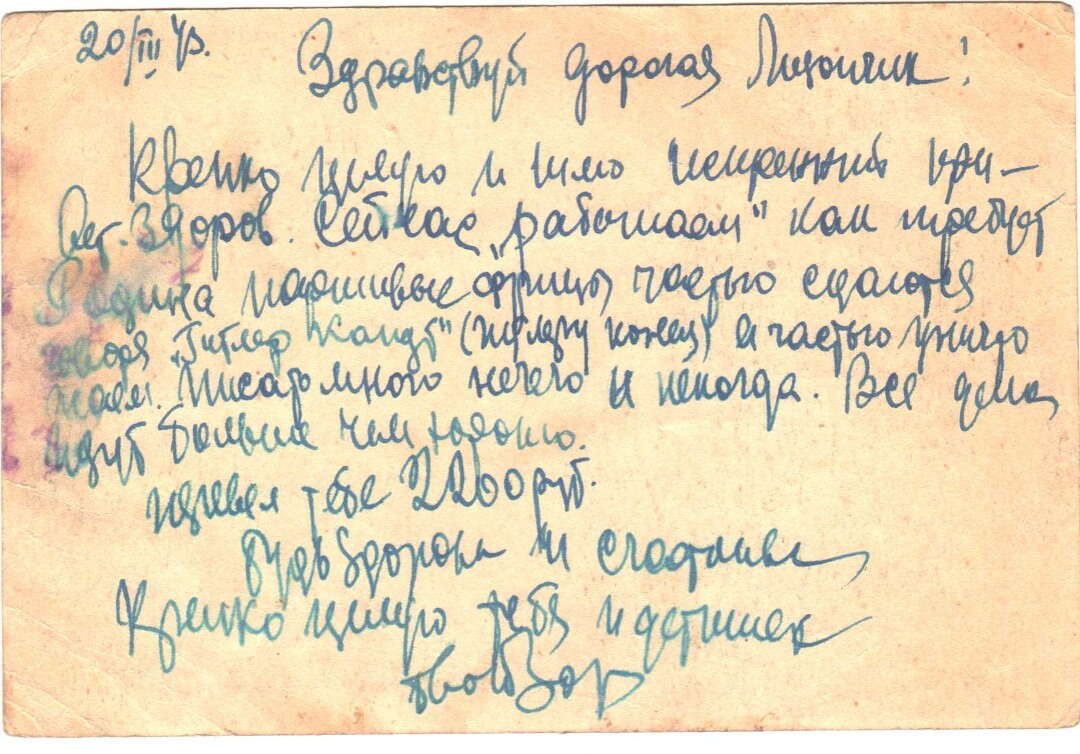 20/III 43.
Здравствуй дорогая Лизончик!
Крепко целую и шлю искренний при-
вет. Здоров. Сейчас "работаем" как требует
Родина паршивые фрицы часто сдаются
говоря "Гитлер Капут" ( конец) а частью уничто
жаем. Писать много нечего и некогда. Все дела
идут больше чем хорошо.
тебе 2200 руб.
Будь здорова и счастлива
Крепко целую тебя и детишек
твой